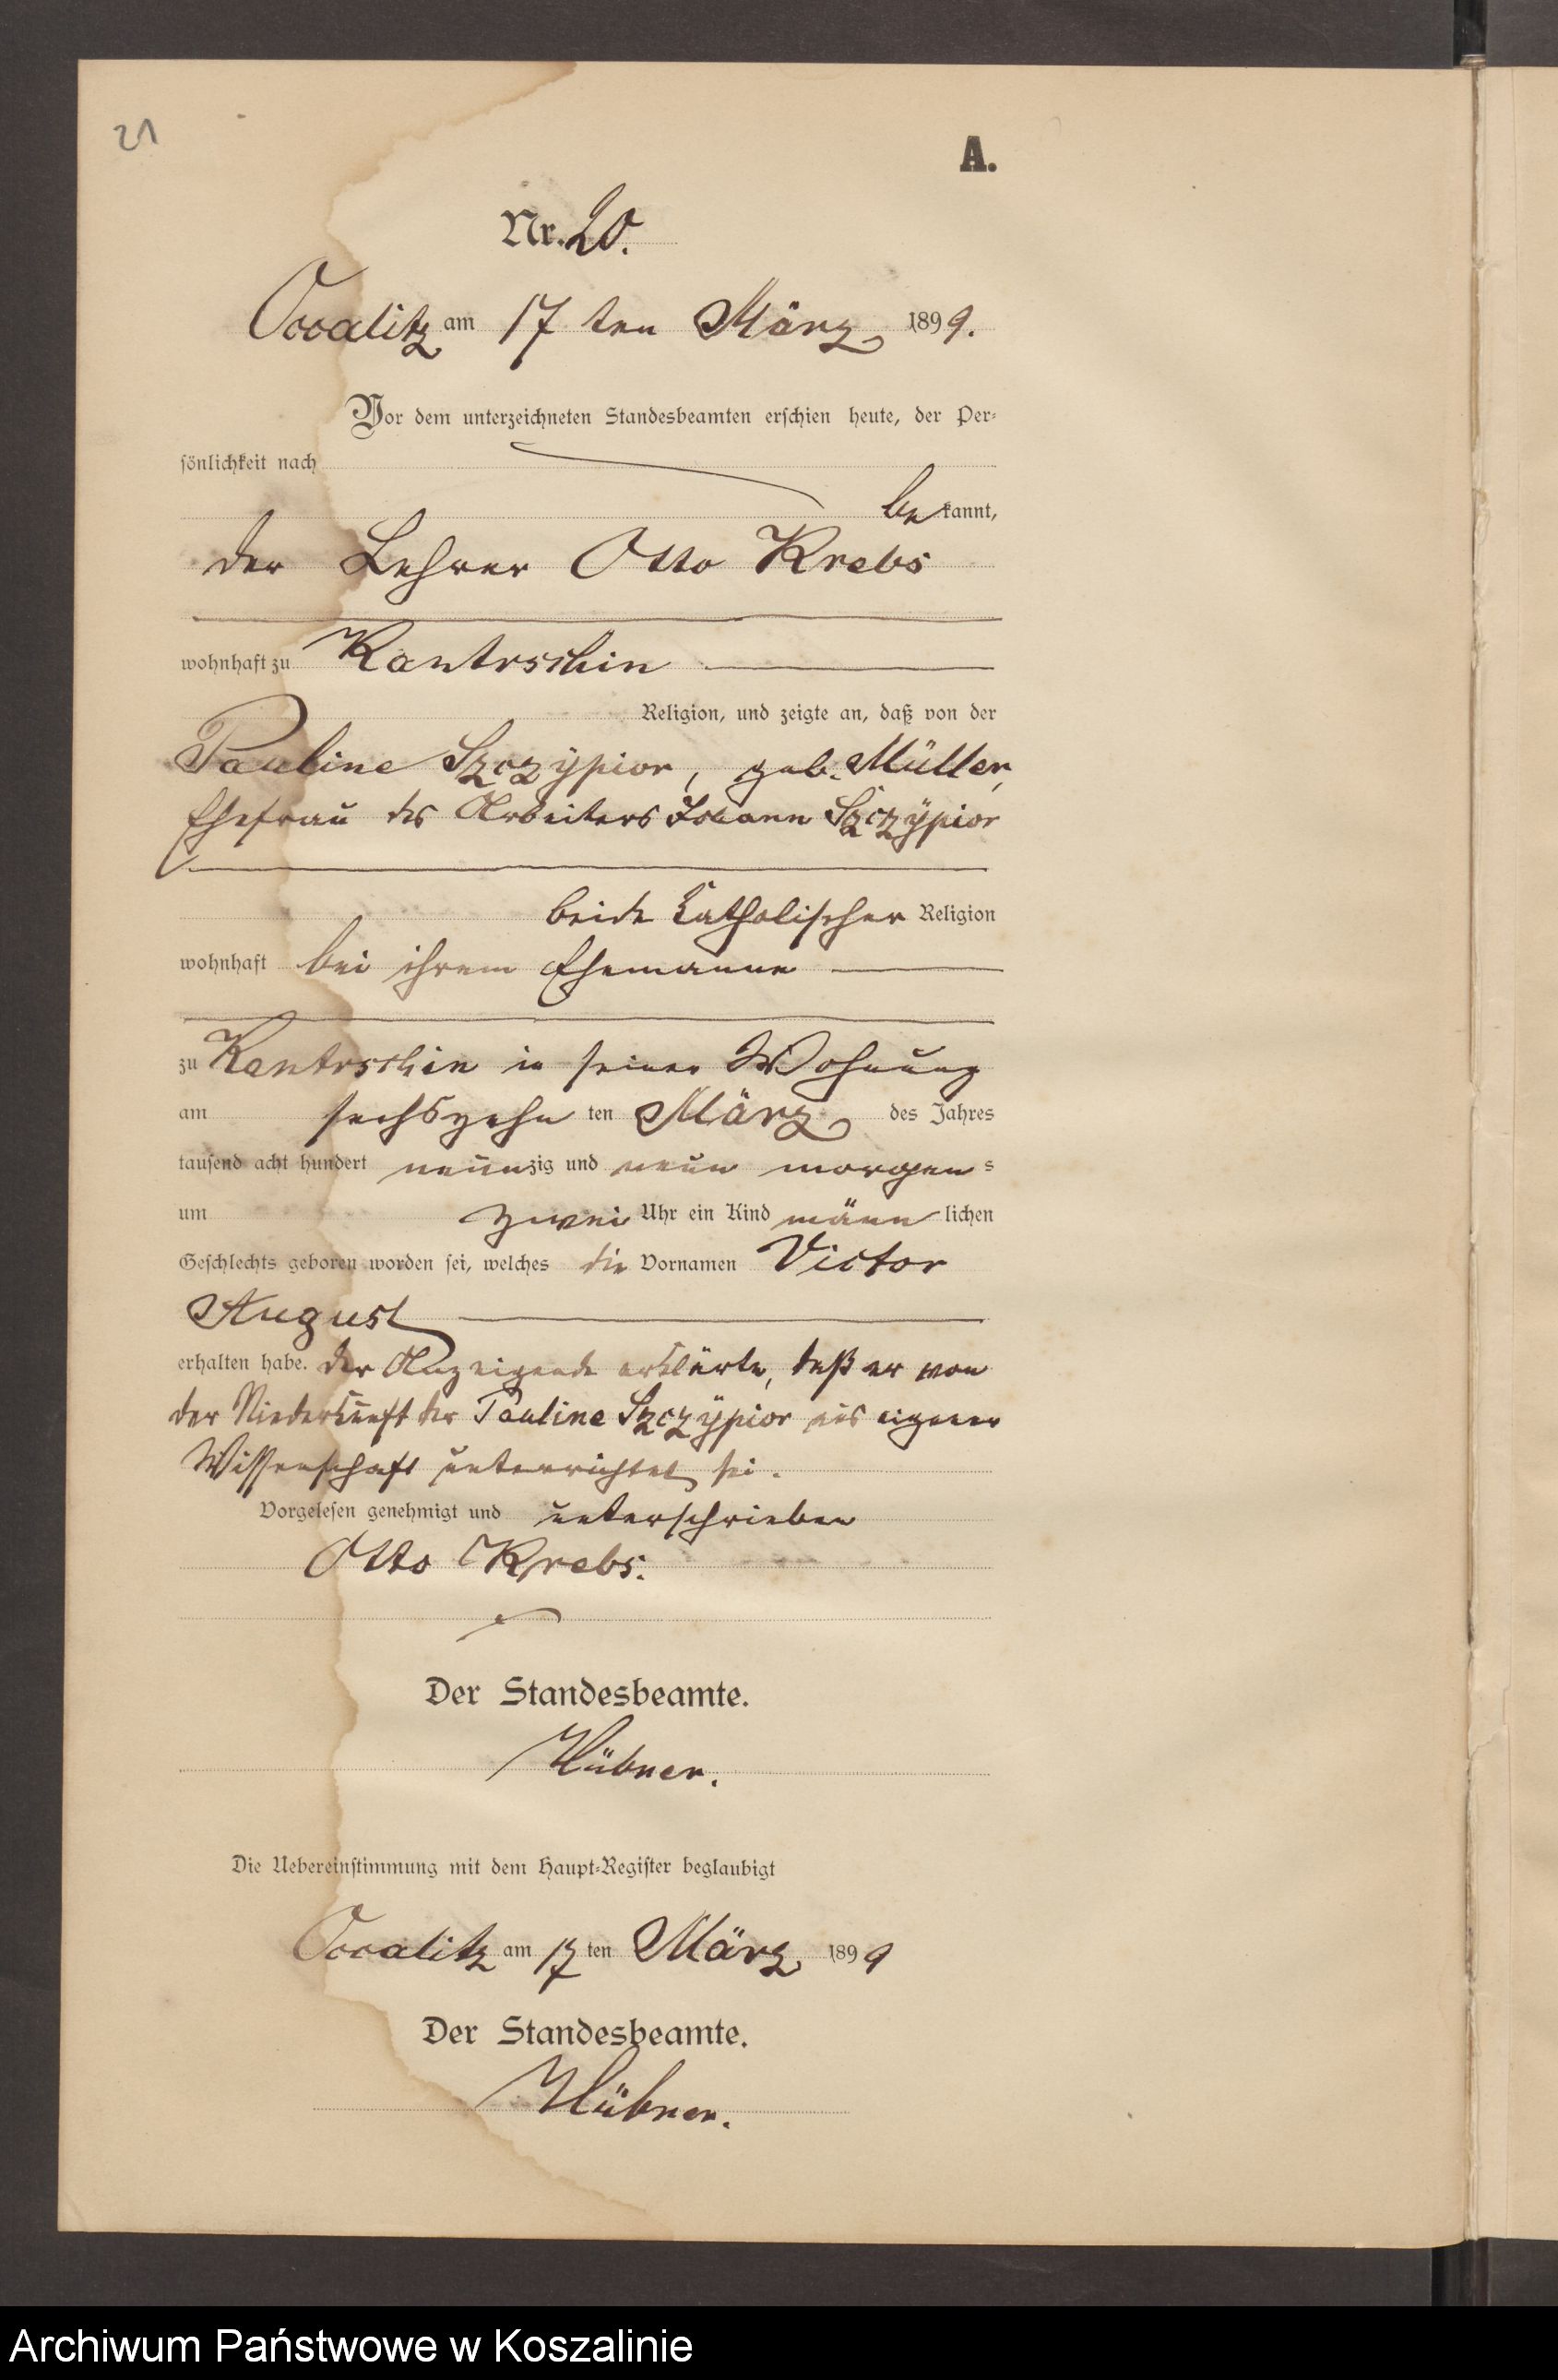 21
A.
Nr. 20.
Occalitz am 17 ten März 1899.
Vor dem unterzeichneten Standesbeamten erschien heute, der Per-
sönlichkeit nach
bekannt,
der Lehrer Otto Krebs
wohnhaft zu Kantrschin
Religion, und zeigte an, daß von der
Pauline Szczÿpior, geb. Müller,
Ehefrau des Arbeiters Johann Szczÿpior
beide katholischer Religion
wohnhaft bei ihrem Ehemanne
zu Kantrschin in seiner Wohnung
am sechszehn ten März des Jahres
tausend acht hundert neunzig und neun morgens
um zwei Uhr ein Kind männlichen
Geschlechts geboren worden sei, welches die Vornamen Victor
August
erhalten habe. Der Anzeigende erklärte, daß er von
der Niederkunft der Pauline Szczÿpior aus eigener
Wissenschaft unterrichtet sei.
Vorgelesen genehmigt und unterschrieben
Otto Krebs.
Der Standesbeamte.
Hübner.
Die Uebereinstimmung mit dem Haupt-Register beglaubigt
Occalitz am 17 ten März 1899
Der Standesbeamte.
Hübner.
Archiwum Państwowe w Koszalinie